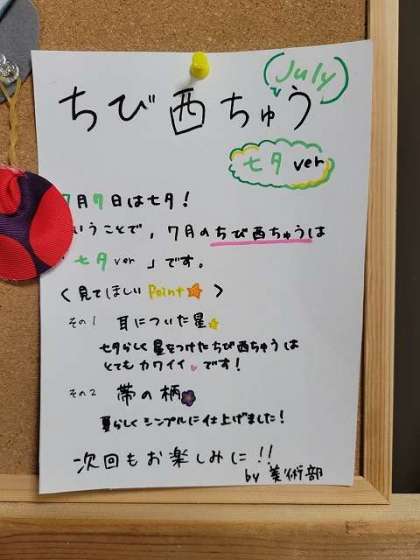 July
ちび西ちゅう
七夕 ver
7月7日は七夕!
いうことで、7月のちび西ちゅうは
七夕 ver 」です。
〈 見てほしい Point 〉
その1 耳についた星
七夕らしく星をつけたちび西ちゅうは
とてもカワイイです!
その2 帯の柄
夏らしくシンプルに仕上げました!
次回もお楽しみに!!
by 美術部